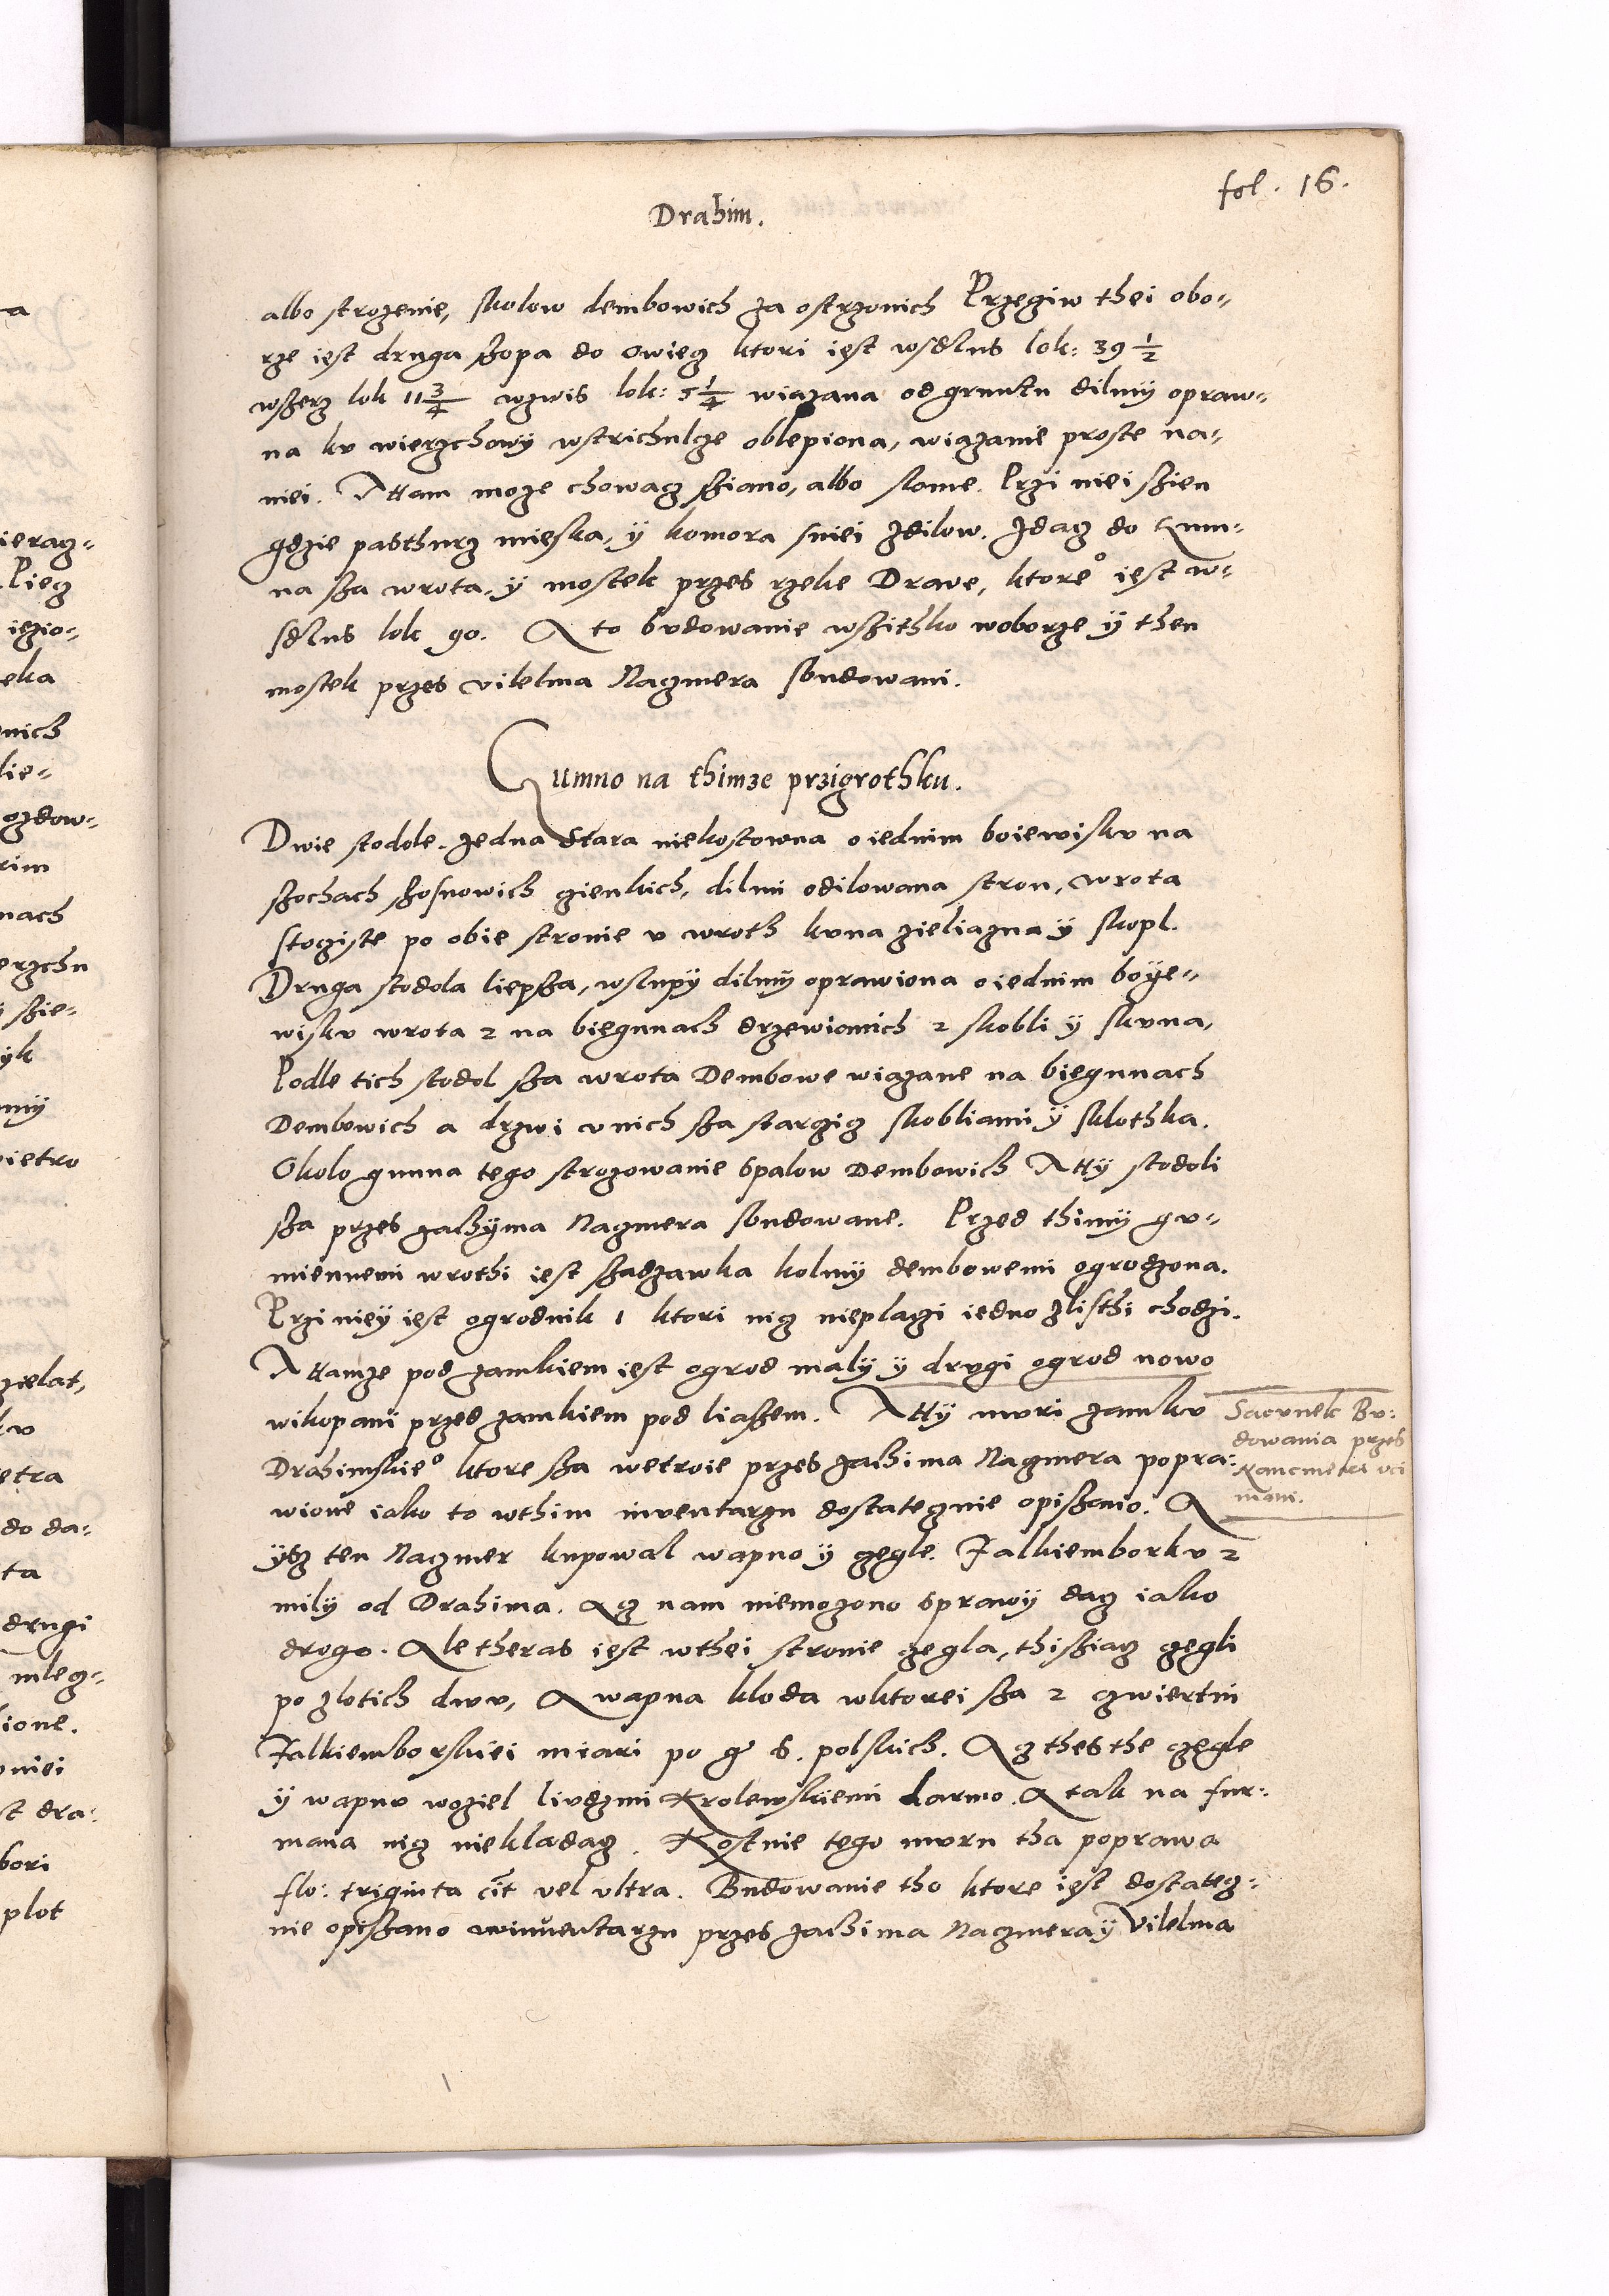 fol. 16.
Drahim.
albo strozenie, skolow dembowich za ostrzonich Przeciw thei obo-
rze iest druga szopa do Owiecz ktori iest wsdlus lok: 39 1/2
wszerz lok 11 3/4 wzwis lok: 5 1/4 wiązana od gruntu dilmÿ opraw-
na kv wierzchowÿ wstrichulcze oblepiona, wiązanie proste na-
niei. A tam moze chowacz sziano, albo slome. Przi niei szien
gdzie pasthurz mieska, ÿ komora sniei zdilow. Idacz do Gum-
na sza wrota, ÿ mostek przes rzeke Drave, ktore° iest w-
sdlus lok 90. A to bvdowanie wszithko woborze ÿ then
mostek przes vilelma Naczmera sbudowani.
Gumno na thimze przigrothku.
Dwie stodole. Jedna Stara niekostowna o iednim boiewiskv na
szochach szosnowich cienkich, dilmi odilowana stron, wrota
stogiste po obie stronie v wroth kvna zieliazna ÿ skopl.
Druga stodola liepsza, wslupÿ dilmÿ oprawiona o iednim boÿe-
wiskv wrota 2 na biegunach drzewianich 2 skobli ÿ skvna,
Podle tich stodol sza wrota Dembowe wiązane na biegunach
Dembowich a drzwi v nich sza starcicz skobliami ÿ sklothka.
Okolo gumna tego strozowanie spalow Dembowich A ttÿ stodoli
sza przes Jachÿma Naczmera sbudowane. Przed thimÿ gv-
miennemi wrothi iest szadzawka kolmÿ dembowemi ogrodzona.
Przi nieÿ iest ogrodnik 1 ktori nicz nieplaczi iedno zlisthi chodzi.
A tamze pod zamkiem iest ogrod malÿ ÿ drvgi ogrod nowo
wikopani przed zamkiem pod liaszem. A ttÿ mvri zamkv
Drahimskie° ktore sza wetroie przes Jachima Naczmera popra:
wione iako to wthim inventarzu dostatecznie opiszano. A
ÿsz ten Naczmer kupowal wapno ÿ czegle. Falkiemborkv 2
milÿ od Drahima. Acz nam niemozono sprawÿ dacz iako
drogo. Ale theras iest wthei stronie czegla, thisziacz czegli
po zlotich dwv, A wapna kloda wktorei sza 2 czwiertni
Falkiemborskiei miari po g 6. polskich. Acz thes the czegle
ÿ wapno woziel livdzmi Krolewskiemi darmo. A tak na fur:
mana nicz niekladacz. Kostnie tego mvru tha poprawa
flo: triginta cit vel vltra. Budowanie tho ktore iest dostatecz-
nie opiszano winventarzu przes Jachima Naczmera ÿ Vilelma
Sacvnek Bv:
dowania przes
Naczmeri vci
niani.